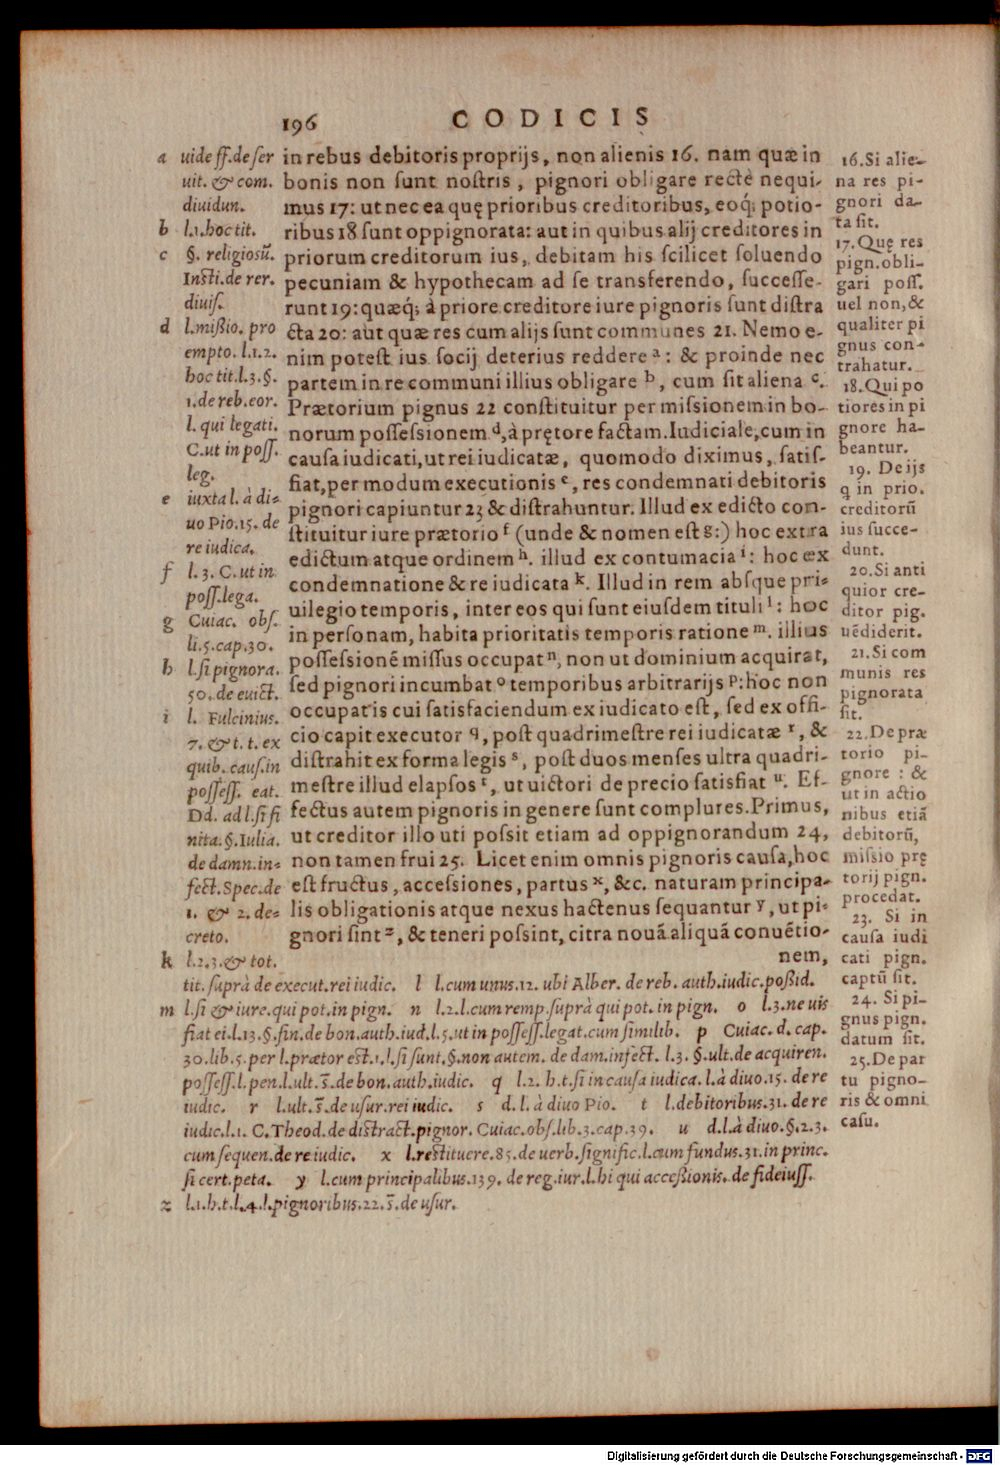 196 CODICIS
a uide ff. de ser
uit. & com.
diuidun.
b l.1.hoc tit.
c §. religiosũ.
Insti.de rer.
diuis.
d l.missio. pro
empto. l.1.2.
hoc tit.l.3.§.
1.de reb.eor.
l. qui legati.
C.ut in poss.
leg.
e iuxta l. à di-
uo Pio.15. de
re iudica.
f l. 3. C. ut in
poss.lega.
g Cuiac. obs.
li.5.cap.30.
h l.si pignora.
50. de euict.
i l. Fulcinius.
7. & t. t. ex
quib. caus.in
possess. eat.
Dd. ad l.si fi
nita.§.Iulia.
de damn.in-
fect.Spec.de
1. & 2. de-
creto.
k l.2.3.& tot.
in rebus debitoris proprijs, non alienis 16. nam quæ in
bonis non sunt nostris, pignori obligare rectè nequi-
mus 17: ut nec ea quę prioribus creditoribus, eoq́; potio-
ribus 18 sunt oppignorata: aut in quibus alij creditores in
priorum creditorum ius, debitam his scilicet soluendo
pecuniam & hypothecam ad se transferendo, successe-
runt 19: quæq́; à priore creditore iure pignoris sunt distra
cta 20: aut quæ res cum alijs sunt communes 21. Nemo e-
nim potest ius socij deterius reddere a: & proinde nec
partem in re communi illius obligare b, cum sit aliena c.
Prætorium pignus 22 constituitur per missionem in bo-
norum possessionem d, à prętore factam. Iudiciale, cum in
causa iudicati, ut rei iudicatæ, quomodo diximus, satis-
fiat, per modum executionis e, res condemnati debitoris
pignori capiuntur 23 & distrahuntur. Illud ex edicto con-
stituitur iure prætorio f (unde & nomen est g:) hoc extra
edictum atque ordinem h. illud ex contumacia i: hoc ex
condemnatione & re iudicata k. Illud in rem absque pri-
uilegio temporis, inter eos qui sunt eiusdem tituli l: hoc
in personam, habita prioritatis temporis ratione m. illius
possessionẽ missus occupat n, non ut dominium acquirat,
sed pignori incumbat o temporibus arbitrarijs p: hoc non
occupat is cui satisfaciendum ex iudicato est, sed ex offi-
cio capit executor q, post quadrimestre rei iudicatæ r, &
distrahit ex forma legis s, post duos menses ultra quadri-
mestre illud elapsos t, ut uictori de precio satisfiat u. Ef-
fectus autem pignoris in genere sunt complures. Primus,
ut creditor illo uti possit etiam ad oppignorandum 24,
non tamen frui 25. Licet enim omnis pignoris causa, hoc
est fructus, accessiones, partus x, &c. naturam principa-
lis obligationis atque nexus hactenus sequantur y, ut pi-
gnori sint z, & teneri possint, citra nouã aliquã conuẽtio-
nem,
16. Si alie-
na res pi-
gnori da-
ta sit.
17. Quę res
pign. obli-
gari poss.
uel non, &
qualiter pi
gnus con-
trahatur.
18. Qui po
tiores in pi
gnore ha-
beantur.
19. De ijs
q in prio.
creditorũ
ius succe-
dunt.
20. Si anti
quior cre-
ditor pig.
uẽdiderit.
21. Si com
munis res
pignorata
sit.
22. De præ
torio pi-
gnore : &
ut in actio
nibus etiã
debitorũ,
missio prę
torij pign.
procedat.
23. Si in
causa iudi
cati pign.
captũ sit.
24. Si pi-
gnus pign.
datum sit.
25. De par
tu pigno-
ris & omni
casu.
tit. suprà de execut.rei iudic. l l.cum unus.12. ubi Alber. de reb. auth.iudic.possid.
m l.si & iure.qui pot.in pign. n l.2.l.cum remp.suprà qui pot. in pign. o l.3.ne uis
fiat ei.l.13.§.fin.de bon.auth.iud.l.5.ut in possess.legat.cum similib. p Cuiac. d. cap.
30.lib.5.per l.prætor est.1.l.si sunt,§.non autem. de dam.infect. l.3. §.ult.de acquiren.
possess.l.pen.l.ult.s̄.de bon.auth.iudic. q l.2. h.t.si in causa iudica.l.à diuo.15. de re
iudic. r l.ult.s̄.de usur.rei iudic. s d. l. à diuo Pio. t l.debitoribus.31. de re
iudic.l.1. C.Theod.de distract.pignor. Cuiac.obs.lib.3.cap.39. u d.l.à diuo.§.2.3.
cum sequen.de re iudic. x l.restituere.85.de uerb.signific.l.cum fundus.31.in princ.
si cert.peta. y l.cum principalibus.139. de reg.iur.l.hi qui accessionis.de fideiuss.
z l.1.h.t.l.4.l.pignoribus.22.s̄.de usur.
Digitalisierung gefördert durch die Deutsche Forschungsgemeinschaft - DFG